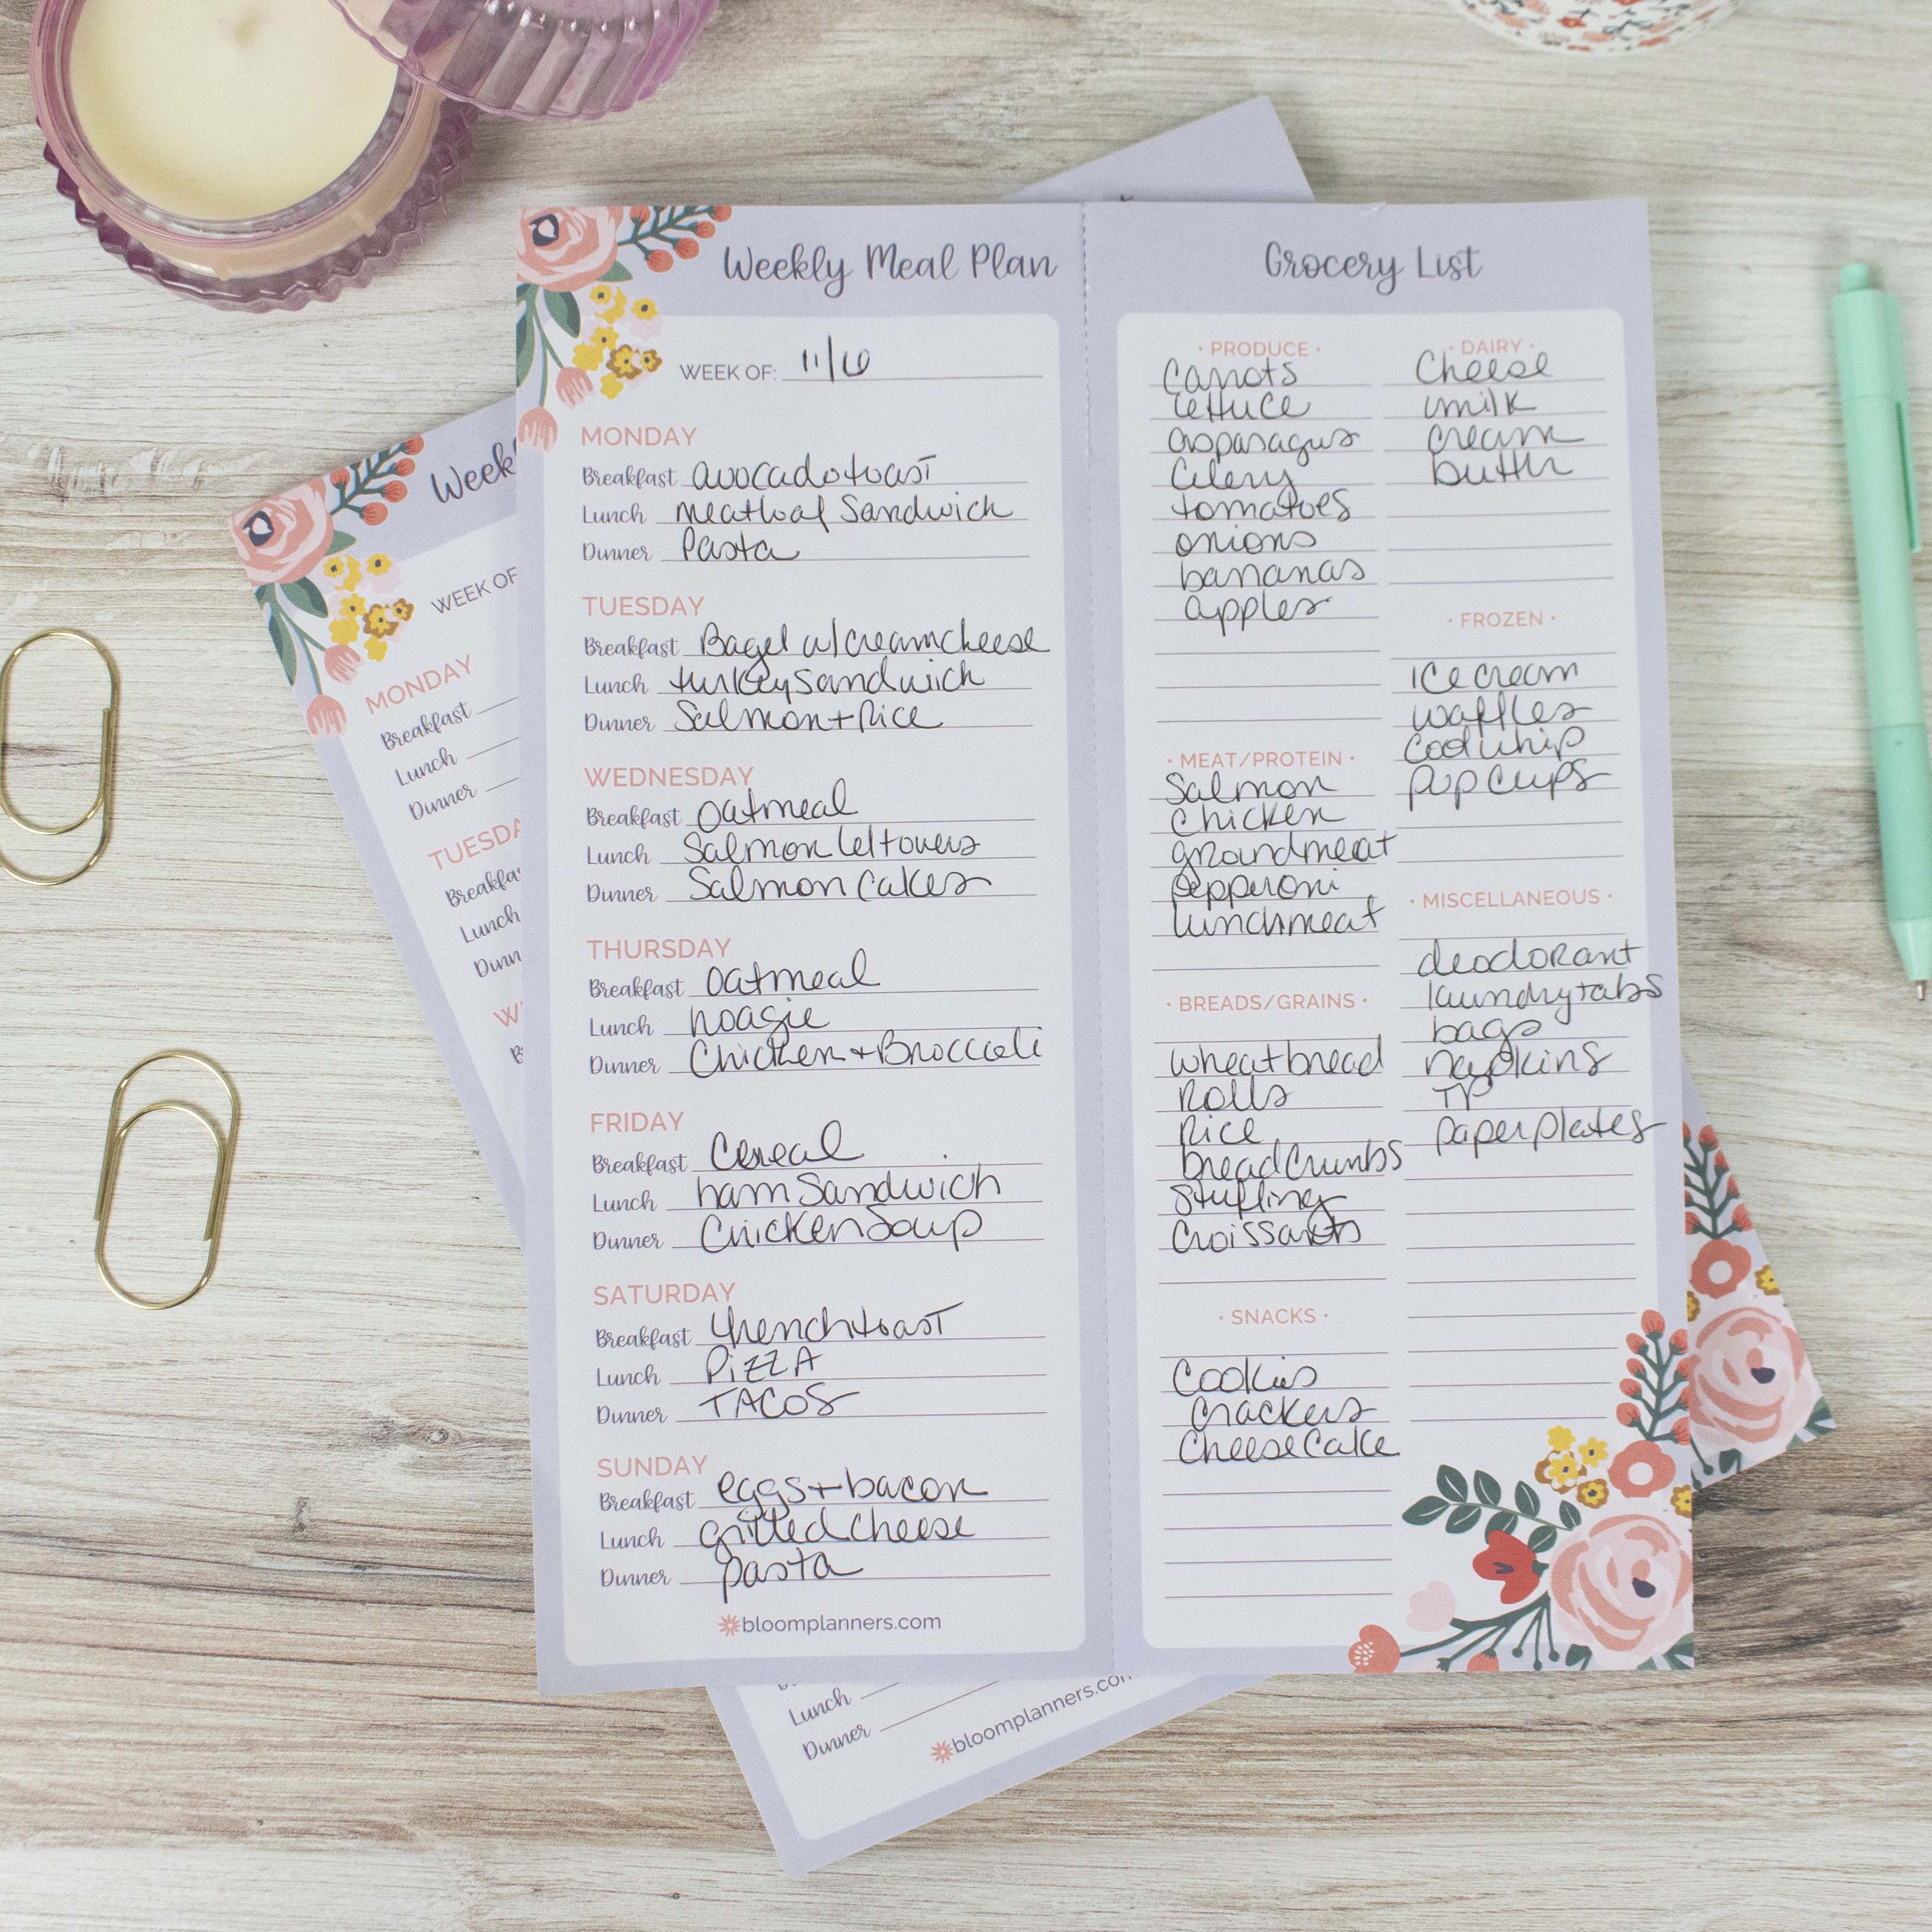 Weekly Meal Plan
WEEK OF: 11/6
MONDAY
Breakfast avocado toast
Lunch meatloaf Sandwich
Dinner Pasta
TUESDAY
Breakfast Bagel w/ creamcheese
Lunch turkey Sandwich
Dinner Salmon + Rice
WEDNESDAY
Breakfast oatmeal
Lunch Salmon leftovers
Dinner Salmon Cakes
THURSDAY
Breakfast oatmeal
Lunch hoagie
Dinner Chicken + Broccoli
FRIDAY
Breakfast Cereal
Lunch ham Sandwich
Dinner Chicken Soup
SATURDAY
Breakfast frenchtoast
Lunch PIZZA
Dinner TACOS
SUNDAY
Breakfast eggs + bacon
Lunch grilled cheese
Dinner pasta
bloomplanners.com
Grocery List
PRODUCE
Carrots
lettuce
asparagus
Celery
tomatoes
onions
bananas
apples
MEAT/PROTEIN
Salmon
Chicken
groundmeat
pepperoni
lunchmeat
BREADS/GRAINS
wheatbread
Rolls
Rice
breadcrumbs
stuffing
Croissants
SNACKS
Cookies
Crackers
Cheese Cake
DAIRY
Cheese
milk
cream
butter
FROZEN
ice cream
waffles
Cool whip
pup cups
MISCELLANEOUS
deodorant
laundry tabs
bags
napkins
TP
paper plates
Weekl
WEEK OF
MONDAY
Breakfast
Lunch
Dinner
TUESDA
Breakfa
Lunch
Dinn
W
B
Lunch
Dinner
bloomplanners.com